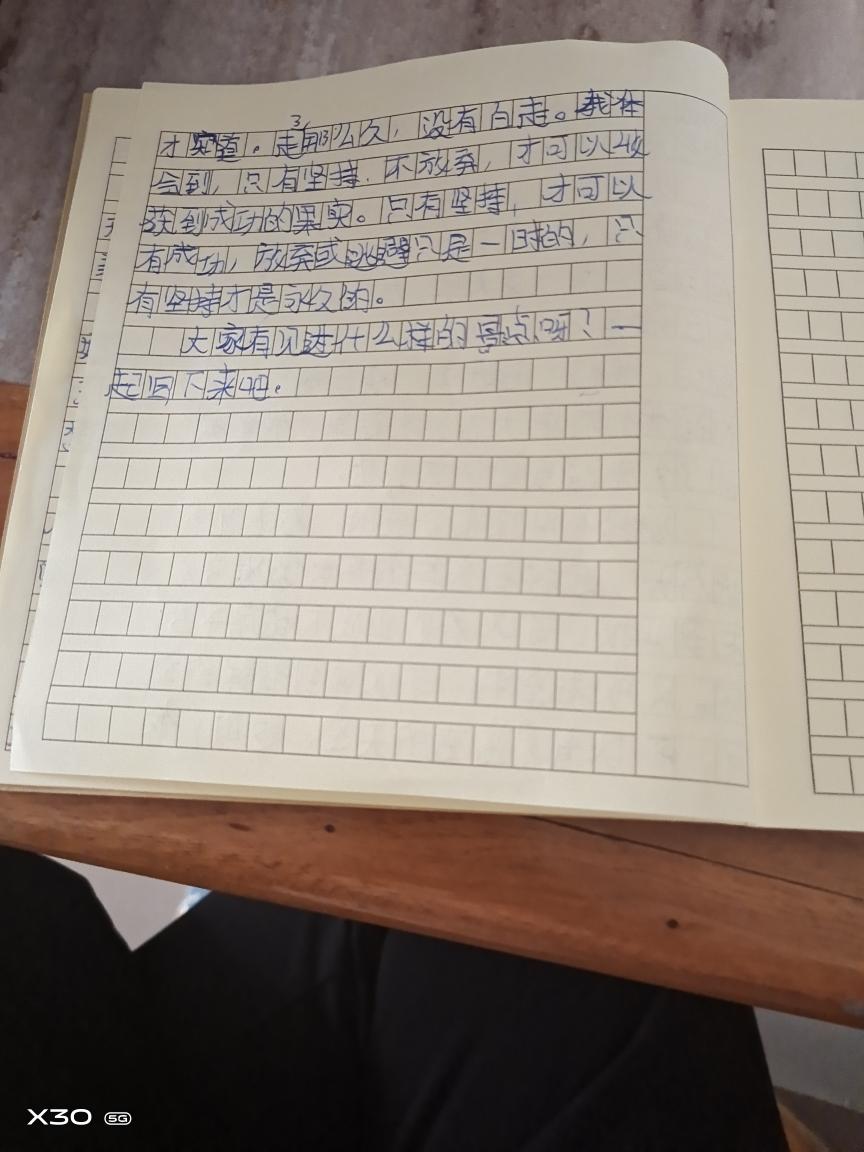 了
才实道。走那么久，没有白走。我体
会到，只有坚持.不放弃，才可以收
获到成功的果实。只有坚持，才可以
有成功，放弃或逃避只是一时的，只
有坚持才是永久的。
大家有见过什么样的景点呀？一
起写下来吧.
X30 5G